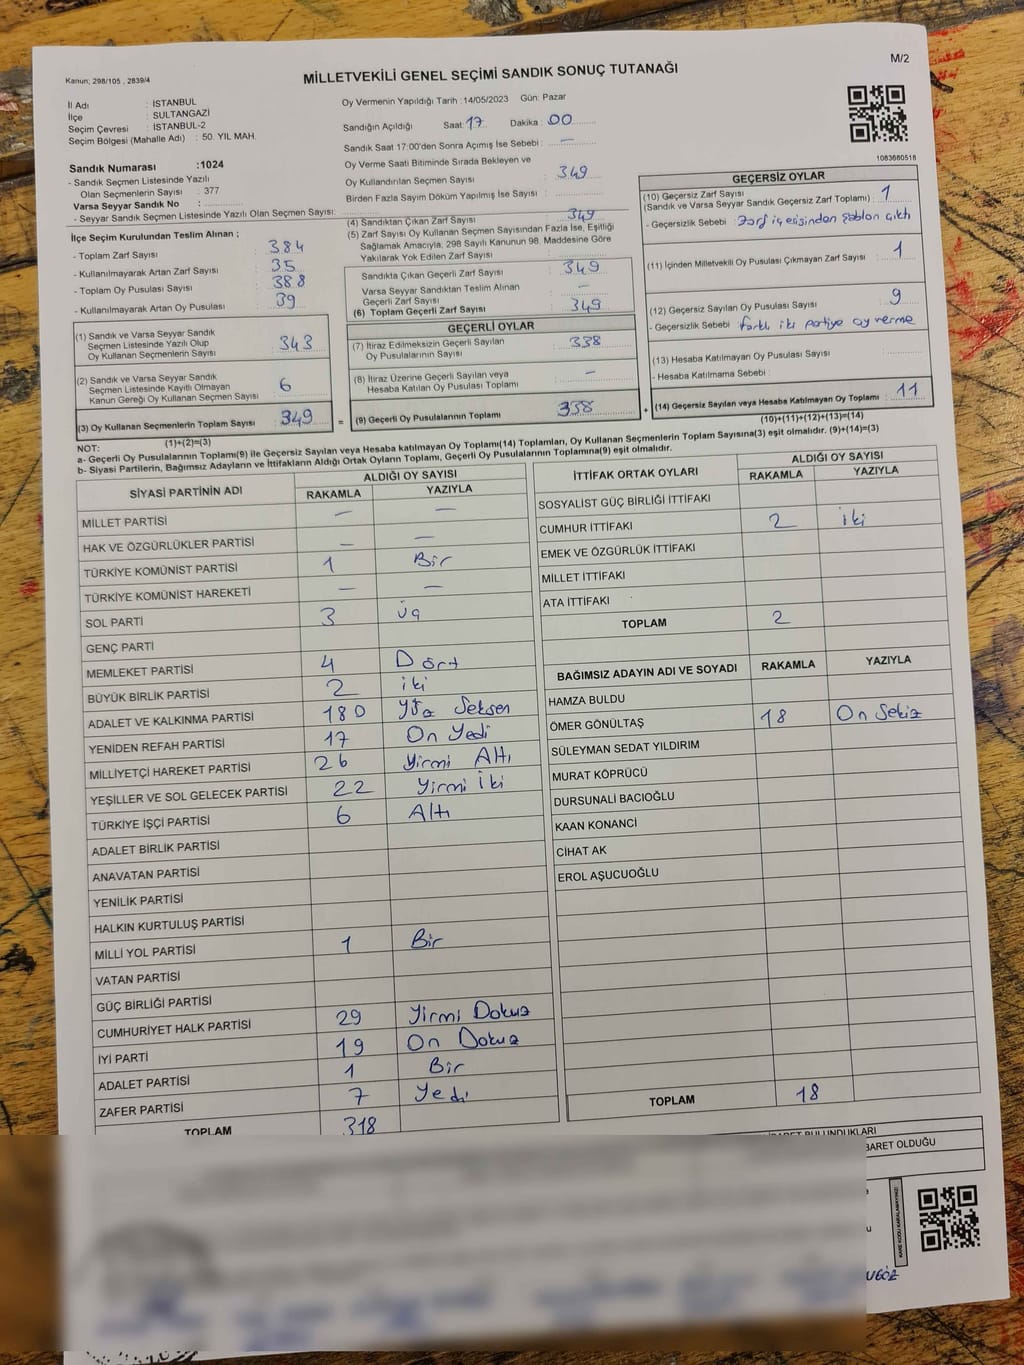 Kanun; 298/105 , 2839/4
MİLLETVEKİLİ GENEL SEÇİMİ SANDIK SONUÇ TUTANAĞI
M/2
İl Adı : İSTANBUL
İlçe : SULTANGAZİ
Seçim Çevresi : İSTANBUL-2
Seçim Bölgesi (Mahalle Adı) : 50. YIL MAH.
Sandık Numarası :1024
- Sandık Seçmen Listesinde Yazılı
Olan Seçmenlerin Sayısı : 377
Varsa Seyyar Sandık No :
- Seyyar Sandık Seçmen Listesinde Yazılı Olan Seçmen Sayısı:
Oy Vermenin Yapıldığı Tarih :14/05/2023 Gün: Pazar
Sandığın Açıldığı Saat: 17 Dakika : 00
Sandık Saat 17:00'den Sonra Açılmış İse Sebebi : —
Oy Verme Saati Bitiminde Sırada Bekleyen ve
Oy Kullandırılan Seçmen Sayısı : 349
Birden Fazla Sayım Döküm Yapılmış İse Sayısı :
1083680518
İlçe Seçim Kurulundan Teslim Alınan ;
- Toplam Zarf Sayısı : 384
- Kullanılmayarak Artan Zarf Sayısı : 35
- Toplam Oy Pusulası Sayısı : 388
- Kullanılmayarak Artan Oy Pusulası : 39
(1) Sandık ve Varsa Seyyar Sandık
Seçmen Listesinde Yazılı Olup
Oy Kullanan Seçmenlerin Sayısı : 343
(2) Sandık ve Varsa Seyyar Sandık
Seçmen Listesinde Kayıtlı Olmayan
Kanun Gereği Oy Kullanan Seçmen Sayısı : 6
(3) Oy Kullanan Seçmenlerin Toplam Sayısı : 349
(1)+(2)=(3)
(4) Sandıktan Çıkan Zarf Sayısı : 349
(5) Zarf Sayısı Oy Kullanan Seçmen Sayısından Fazla İse, Eşitliği
Sağlamak Amacıyla, 298 Sayılı Kanunun 98. Maddesine Göre
Yakılarak Yok Edilen Zarf Sayısı :
Sandıkta Çıkan Geçerli Zarf Sayısı : 349
Varsa Seyyar Sandıktan Teslim Alınan
Geçerli Zarf Sayısı : —
(6) Toplam Geçerli Zarf Sayısı : 349
GEÇERLİ OYLAR
(7) İtiraz Edilmeksizin Geçerli Sayılan
Oy Pusulalarının Sayısı : 338
(8) İtiraz Üzerine Geçerli Sayılan veya
Hesaba Katılan Oy Pusulası Toplamı : —
= (9) Geçerli Oy Pusulalarının Toplamı : 338
GEÇERSİZ OYLAR
(10) Geçersiz Zarf Sayısı : 1
(Sandık ve Varsa Seyyar Sandık Geçersiz Zarf Toplamı)
- Geçersizlik Sebebi : Zarf içerisinden şablon çıktı
(11) İçinden Milletvekili Oy Pusulası Çıkmayan Zarf Sayısı : 1
(12) Geçersiz Sayılan Oy Pusulası Sayısı : 9
- Geçersizlik Sebebi : farklı iki partiye oy verme
(13) Hesaba Katılmayan Oy Pusulası Sayısı :
- Hesaba Katılmama Sebebi :
+ (14) Geçersiz Sayılan veya Hesaba Katılmayan Oy Toplamı : 11
(10)+(11)+(12)+(13)=(14)
NOT:
a- Geçerli Oy Pusulalarının Toplamı(9) ile Geçersiz Sayılan veya Hesaba katılmayan Oy Toplamı(14) Toplamları, Oy Kullanan Seçmenlerin Toplam Sayısına(3) eşit olmalıdır. (9)+(14)=(3)
b- Siyasi Partilerin, Bağımsız Adayların ve İttifakların Aldığı Ortak Oyların Toplamı, Geçerli Oy Pusulalarının Toplamına(9) eşit olmalıdır.
SİYASİ PARTİNİN ADI ALDIĞI OY SAYISI
RAKAMLA YAZIYLA
MİLLET PARTİSİ — —
HAK VE ÖZGÜRLÜKLER PARTİSİ — —
TÜRKİYE KOMÜNİST PARTİSİ 1 Bir
TÜRKİYE KOMÜNİST HAREKETİ — —
SOL PARTİ 3 üç
GENÇ PARTİ
MEMLEKET PARTİSİ 4 Dört
BÜYÜK BİRLİK PARTİSİ 2 iki
ADALET VE KALKINMA PARTİSİ 180 Yüz Seksen
YENİDEN REFAH PARTİSİ 17 On Yedi
MİLLİYETÇİ HAREKET PARTİSİ 26 Yirmi Altı
YEŞİLLER VE SOL GELECEK PARTİSİ 22 Yirmi İki
TÜRKİYE İŞÇİ PARTİSİ 6 Altı
ADALET BİRLİK PARTİSİ
ANAVATAN PARTİSİ
YENİLİK PARTİSİ
HALKIN KURTULUŞ PARTİSİ
MİLLİ YOL PARTİSİ 1 Bir
VATAN PARTİSİ
GÜÇ BİRLİĞİ PARTİSİ
CUMHURİYET HALK PARTİSİ 29 Yirmi Dokuz
İYİ PARTİ 19 On Dokuz
ADALET PARTİSİ 1 Bir
ZAFER PARTİSİ 7 Yedi
TOPLAM 318
İTTİFAK ORTAK OYLARI ALDIĞI OY SAYISI
RAKAMLA YAZIYLA
SOSYALİST GÜÇ BİRLİĞİ İTTİFAKI
CUMHUR İTTİFAKI 2 iki
EMEK VE ÖZGÜRLÜK İTTİFAKI
MİLLET İTTİFAKI
ATA İTTİFAKI
TOPLAM 2
BAĞIMSIZ ADAYIN ADI VE SOYADI RAKAMLA YAZIYLA
HAMZA BULDU
ÖMER GÖNÜLTAŞ 18 On Sekiz
SÜLEYMAN SEDAT YILDIRIM
MURAT KÖPRÜCÜ
DURSUNALİ BACIOĞLU
KAAN KONANCİ
CİHAT AK
EROL AŞUCUOĞLU
TOPLAM 18
BULUNDUKLARI
BARET OLDUĞU
KARE KODU KARALAMAYINIZ!